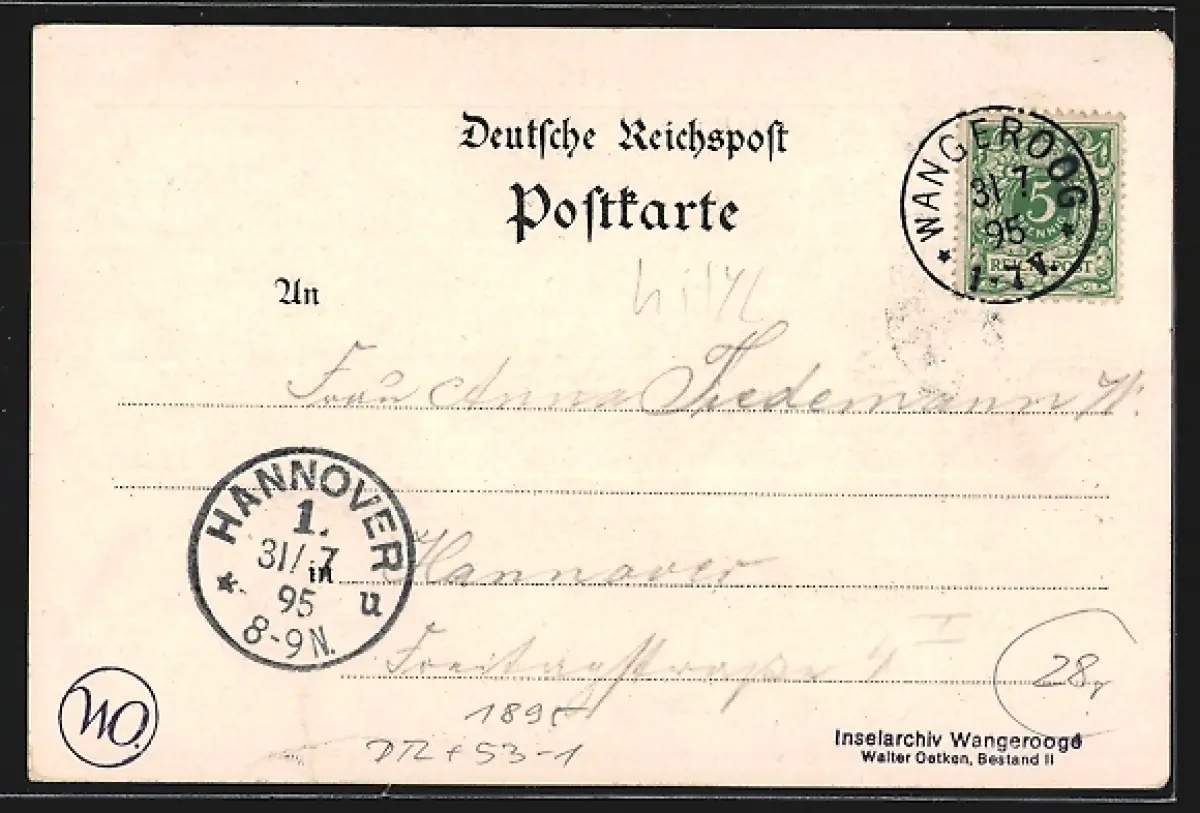 Deutsche Reichspost
Postkarte
WANGEROOG
31 7
95
1-7 V.
5
PFENNIG
REICHSPOST
An
Frau Anna Tiedemann W.
HANNOVER
1.
31/.7
95
8-9 N.
u
in Hannover
Freitagstraße 4 I
28,
1895
WO.
Inselarchiv Wangerooge
Walter Oetken, Bestand II